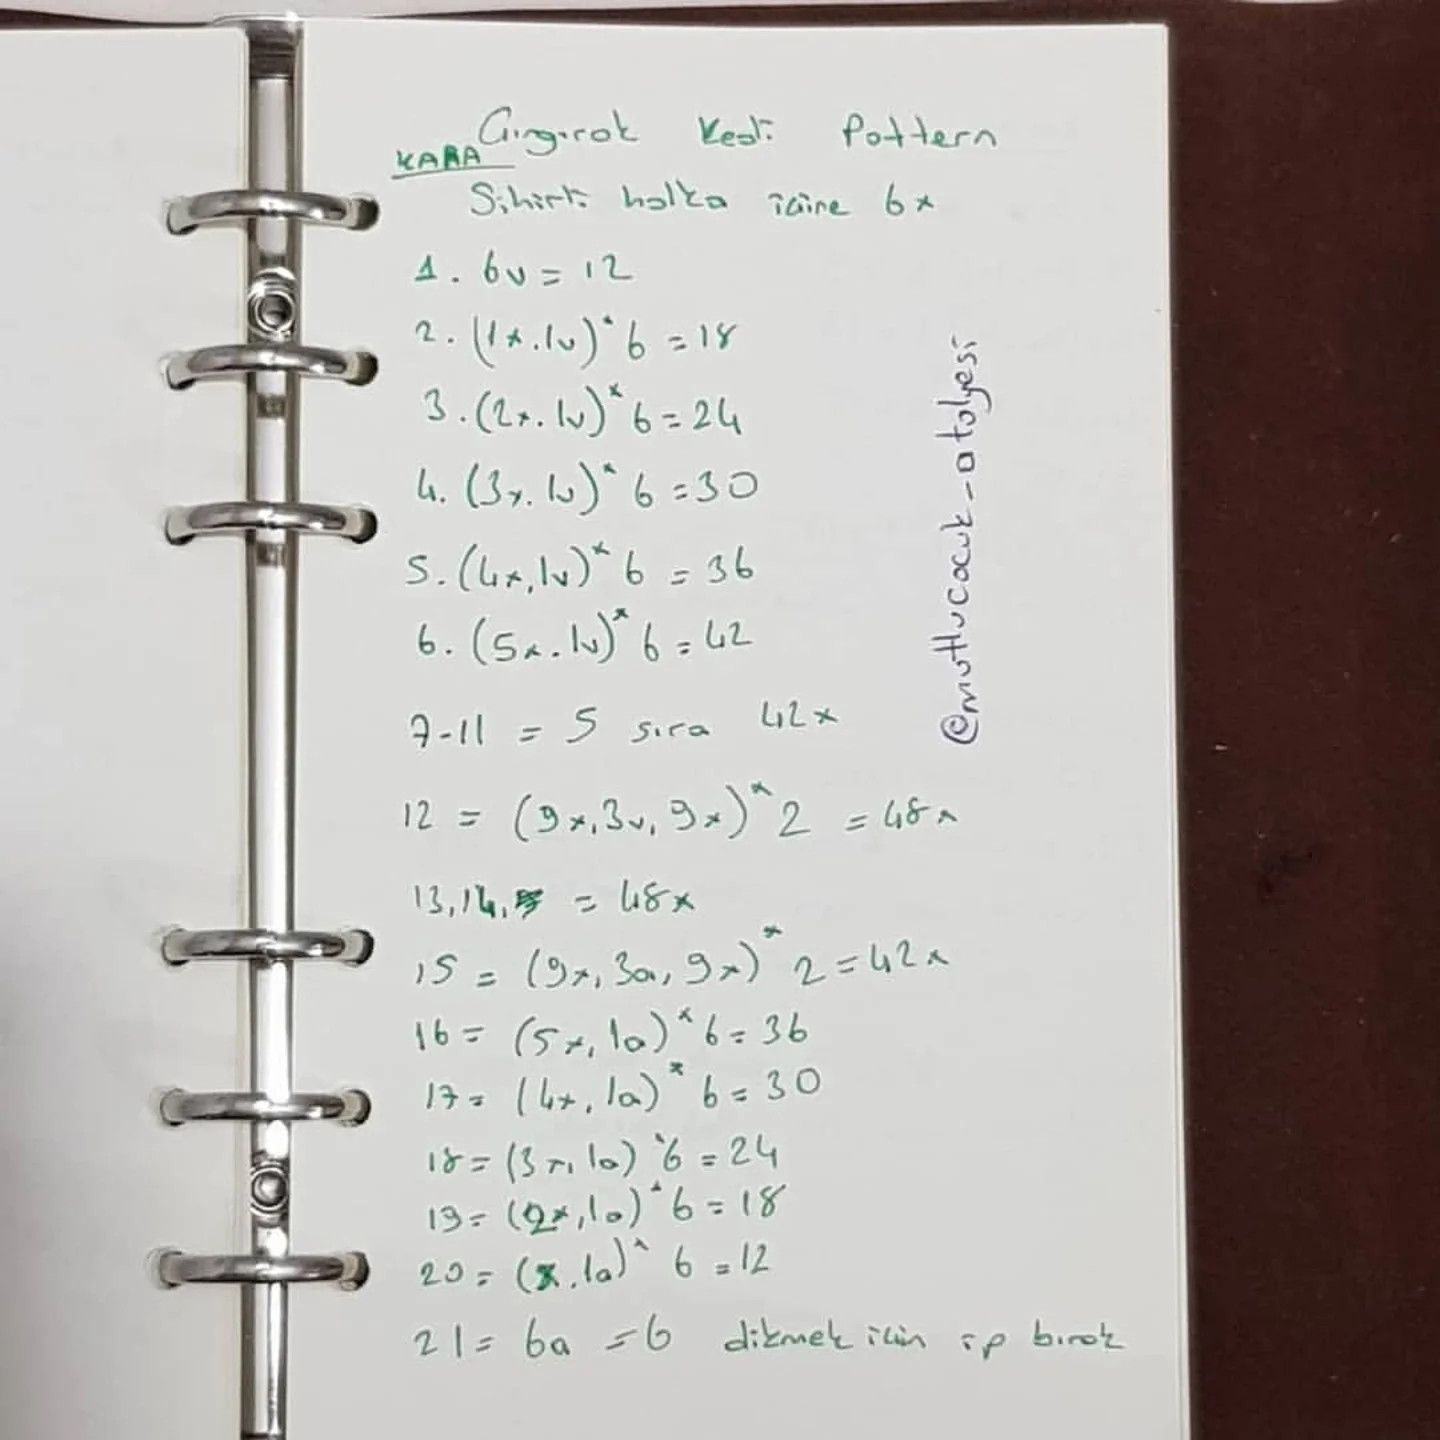 Çıngırak Kedi Pattern
KAFA
Sihirli halka içine 6x
1. 6v = 12
2. (1x.1v)*6 = 18
3. (2x.1v)*6 = 24
4. (3x.1v)*6 = 30
5. (4x,1v)*6 = 36
6. (5x.1v)*6 = 42
7-11 = 5 sıra 42x
12 = (9x,3v,9x)*2 = 48x
13,14, = 48x
15 = (9x,3a,9x)*2 = 42x
16 = (5x,1a)*6 = 36
17 = (4x,1a)*6 = 30
18 = (3x,1a)*6 = 24
19 = (2x,1a)*6 = 18
20 = (x,1a)*6 = 12
21 = 6a = 6 dikmek için ip bırak
@mutlucocuk_atolyesi